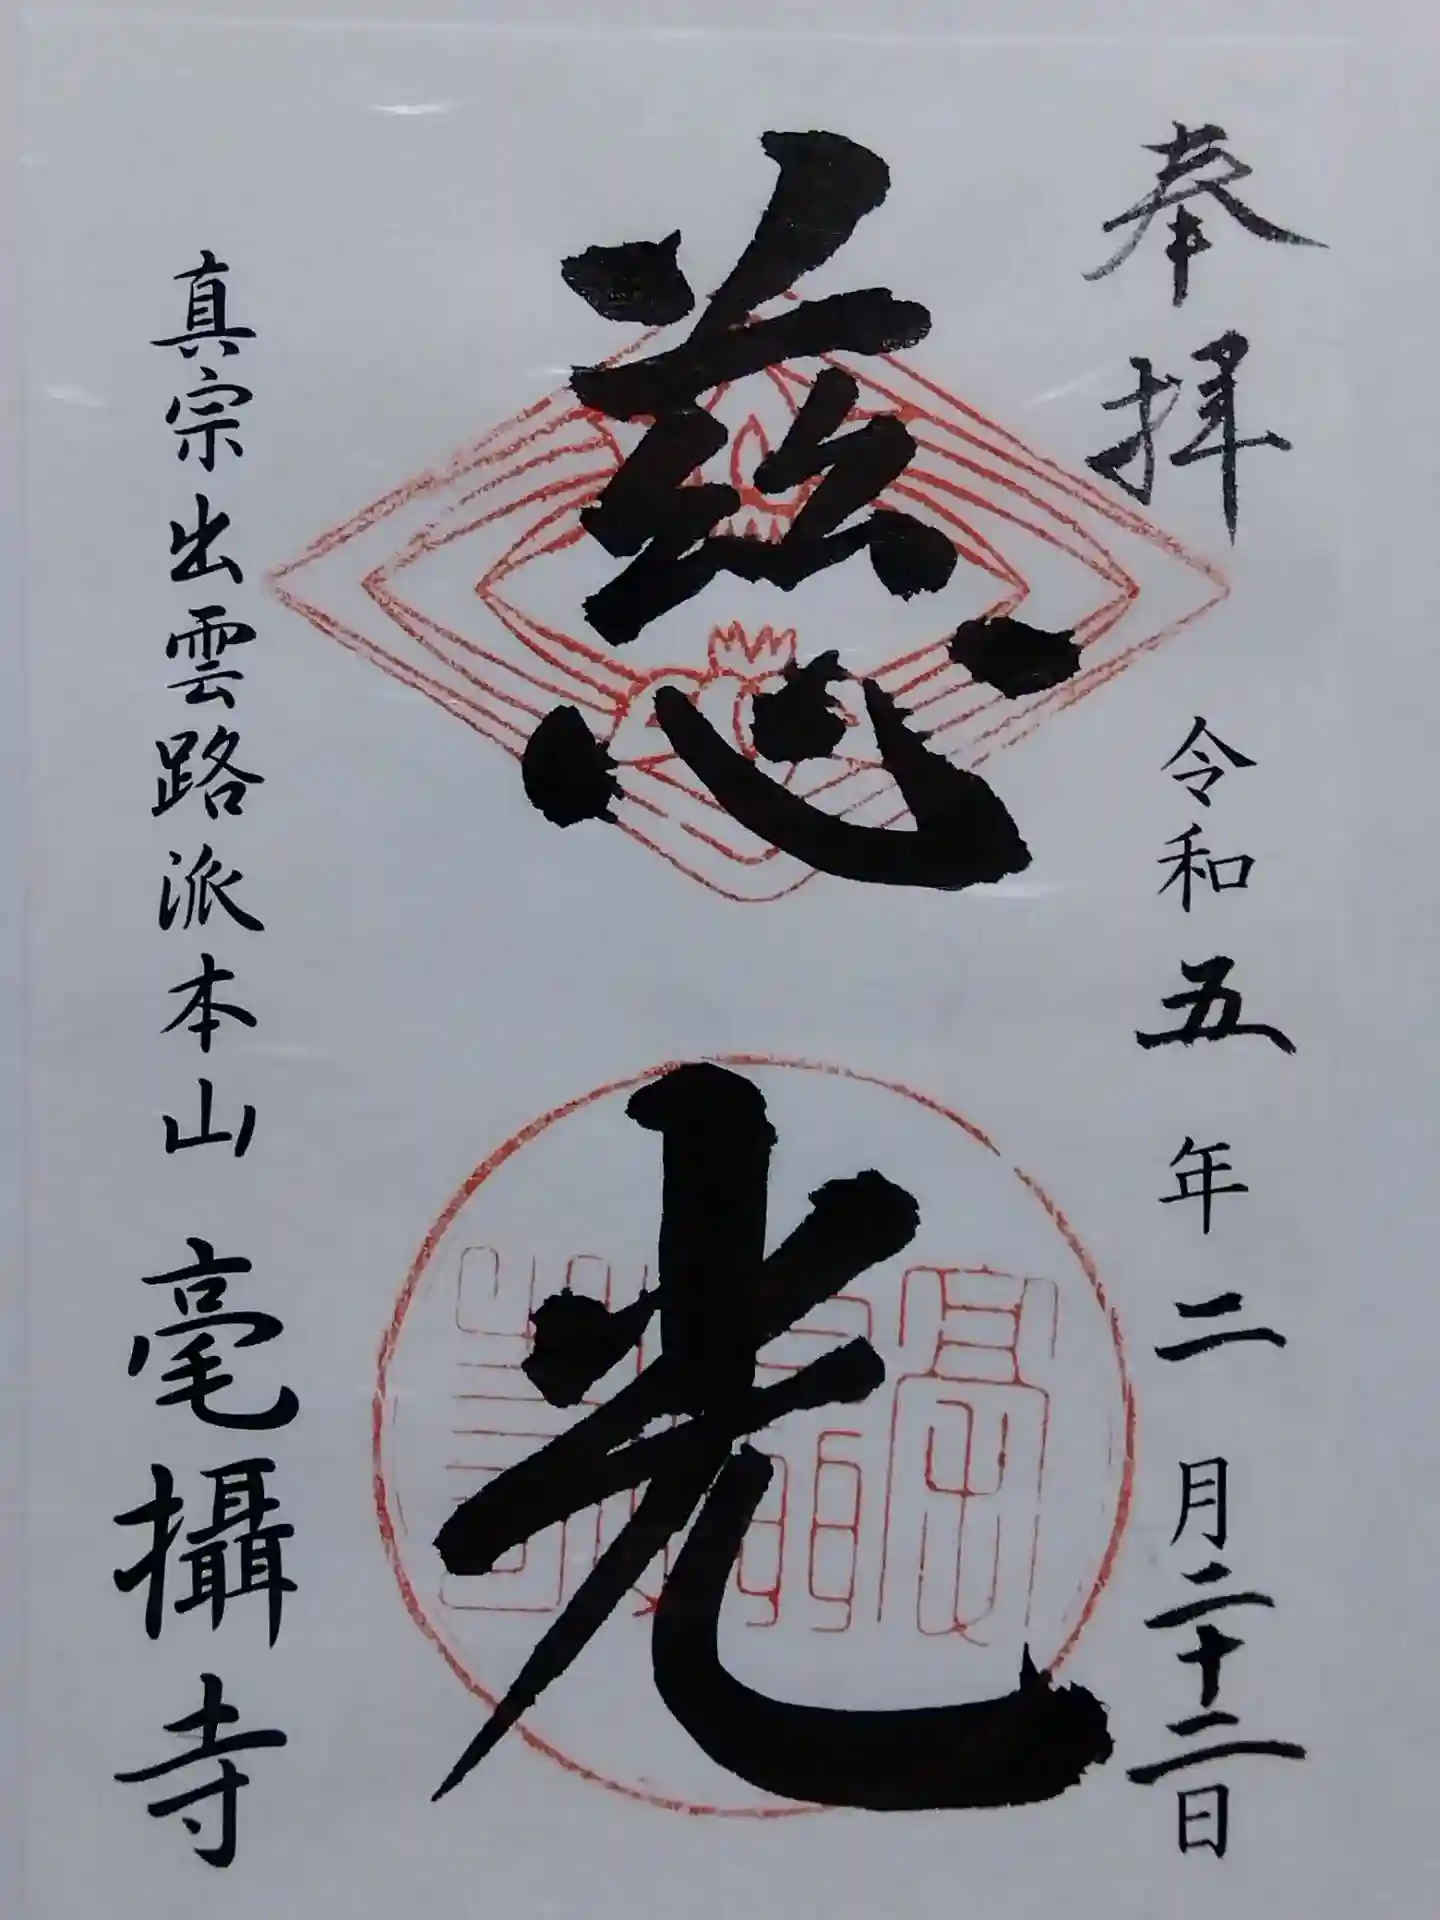 奉拝
令和五年二月二十二日
慈光
真宗出雲路派本山 毫攝寺